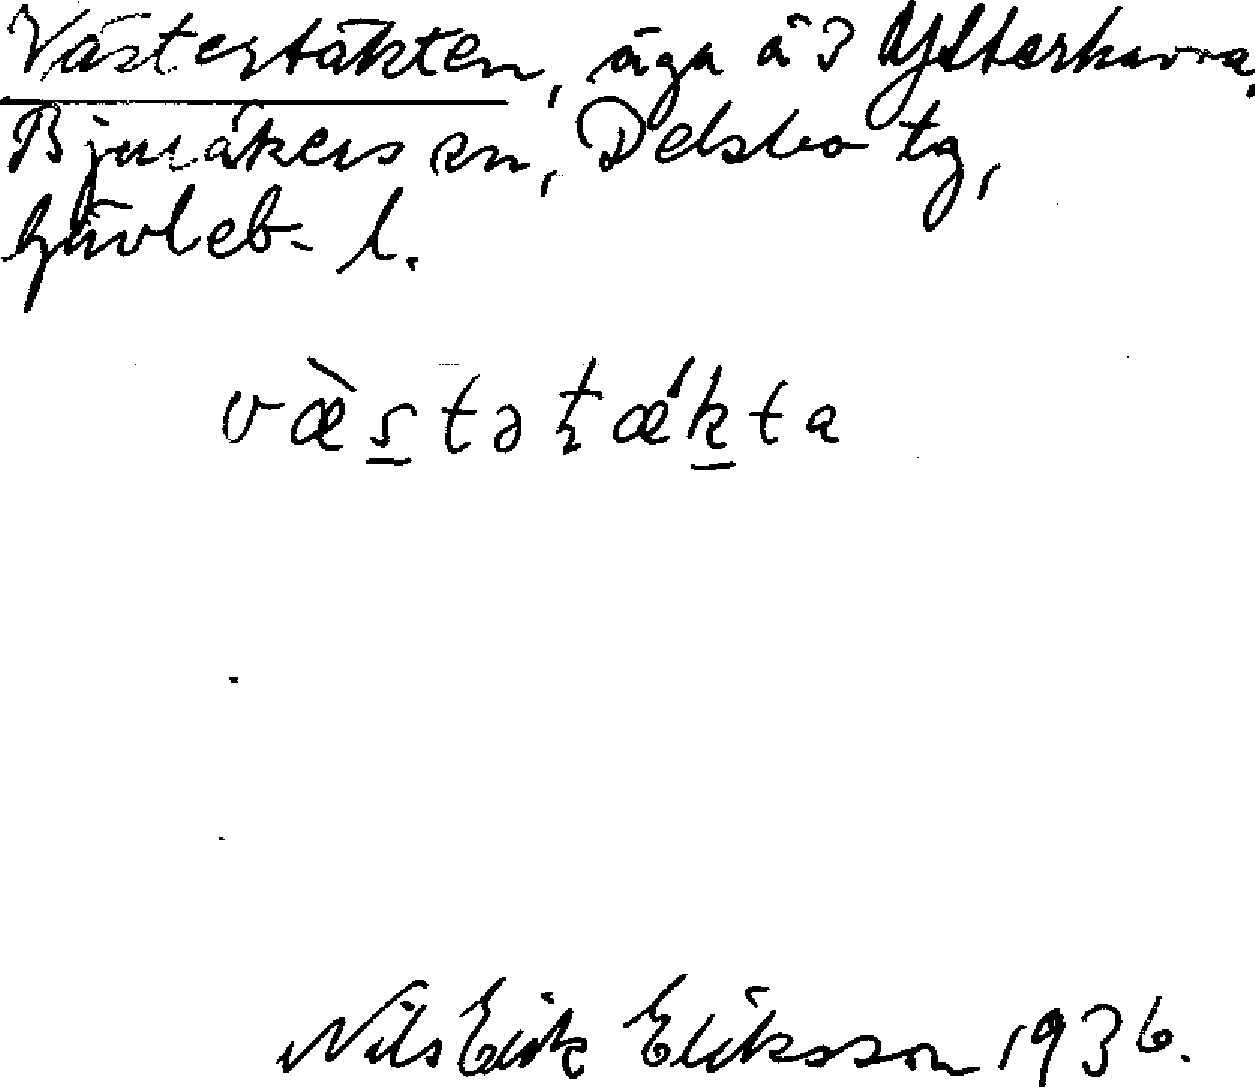 Västertäkten, äga å 3 Ytterhavra,
Bjuråkers sn, Delsbo tg,
Gävleb. l.
væ̀s̲tətǽk̲ta
Nils Erik Eriksson 1936.